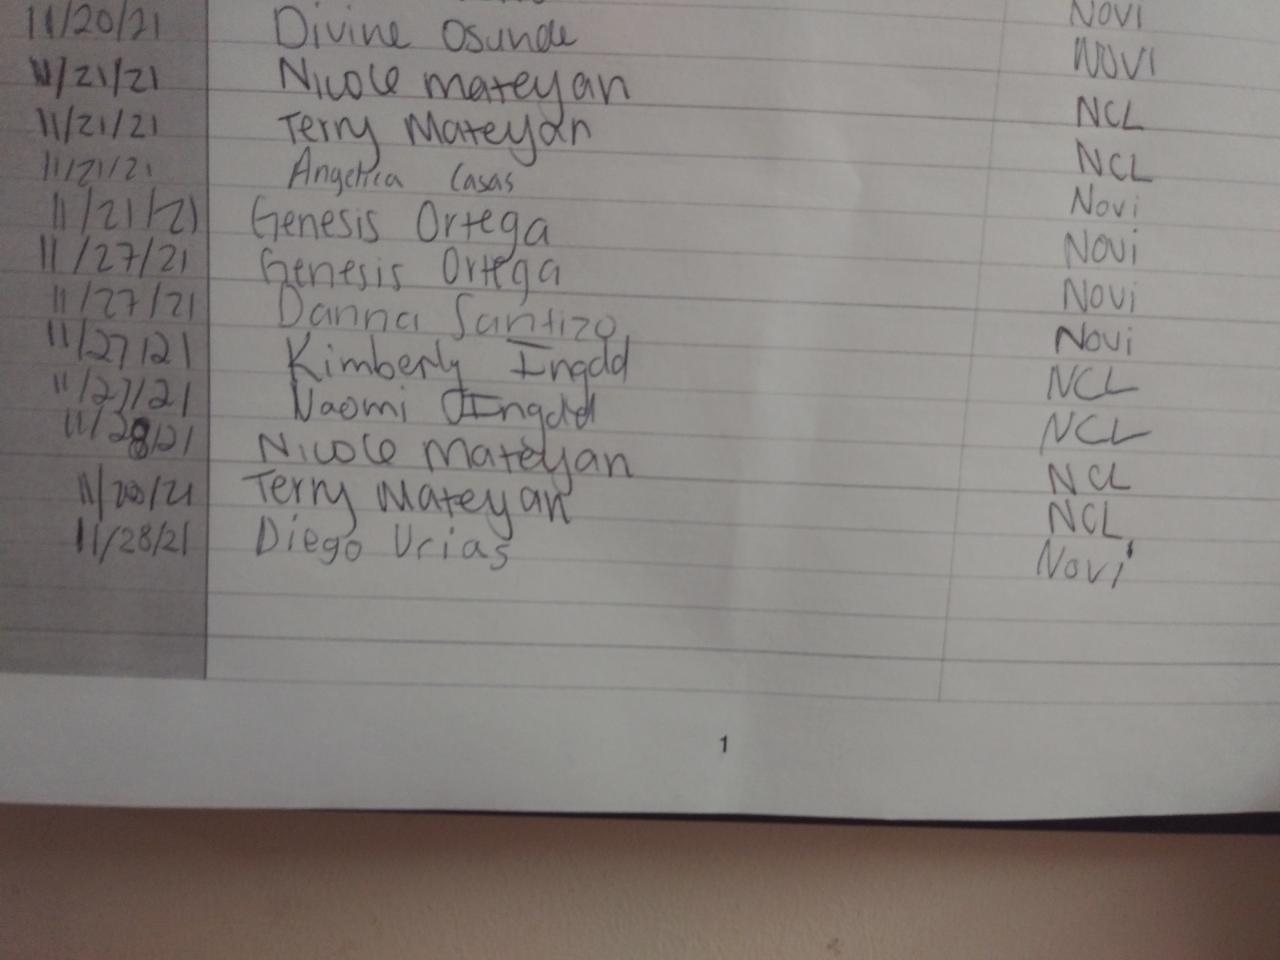 NOVI
11/20/21 Divine Osunde NOVI
11/21/21 Nicole Mateyan NCL
11/21/21 Terry Mateyan NCL
11/21/21 Angelica Casas Novi
11/21/21 Genesis Ortega Novi
11/27/21 Genesis Ortega Novi
11/27/21 Danna Santizo Novi
11/27/21 Kimberly Ingdd NCL
11/27/21 Naomi Ingdd NCL
11/28/21 Nicole Mateyan NCL
11/28/21 Terry Mateyan NCL
11/28/21 Diego Urias Novi
1